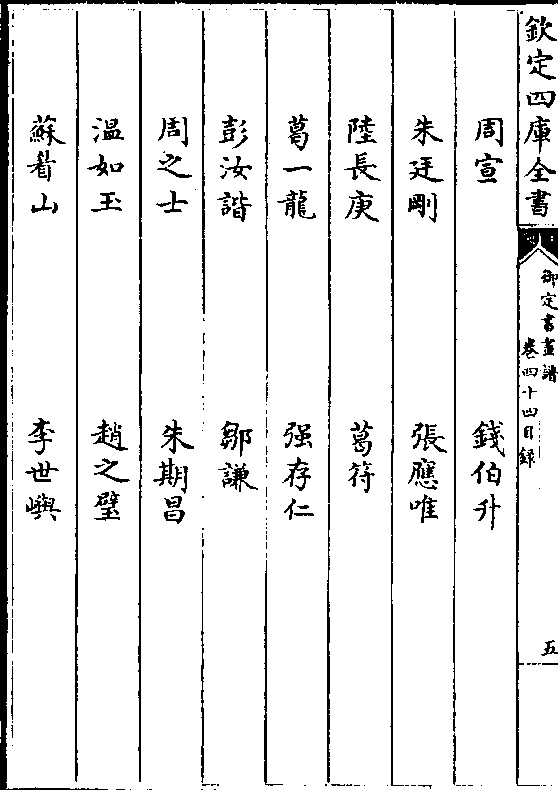 欽定四庫全書
御定書畫譜
卷四十四目録
五
周宣 錢伯升
朱廷剛 張應唯
陸長庚 葛符
葛一龍 强存仁
彭汝諧 鄒謙
周之士 朱期昌
溫如玉 趙之璧
蘇眉山 李世嶼